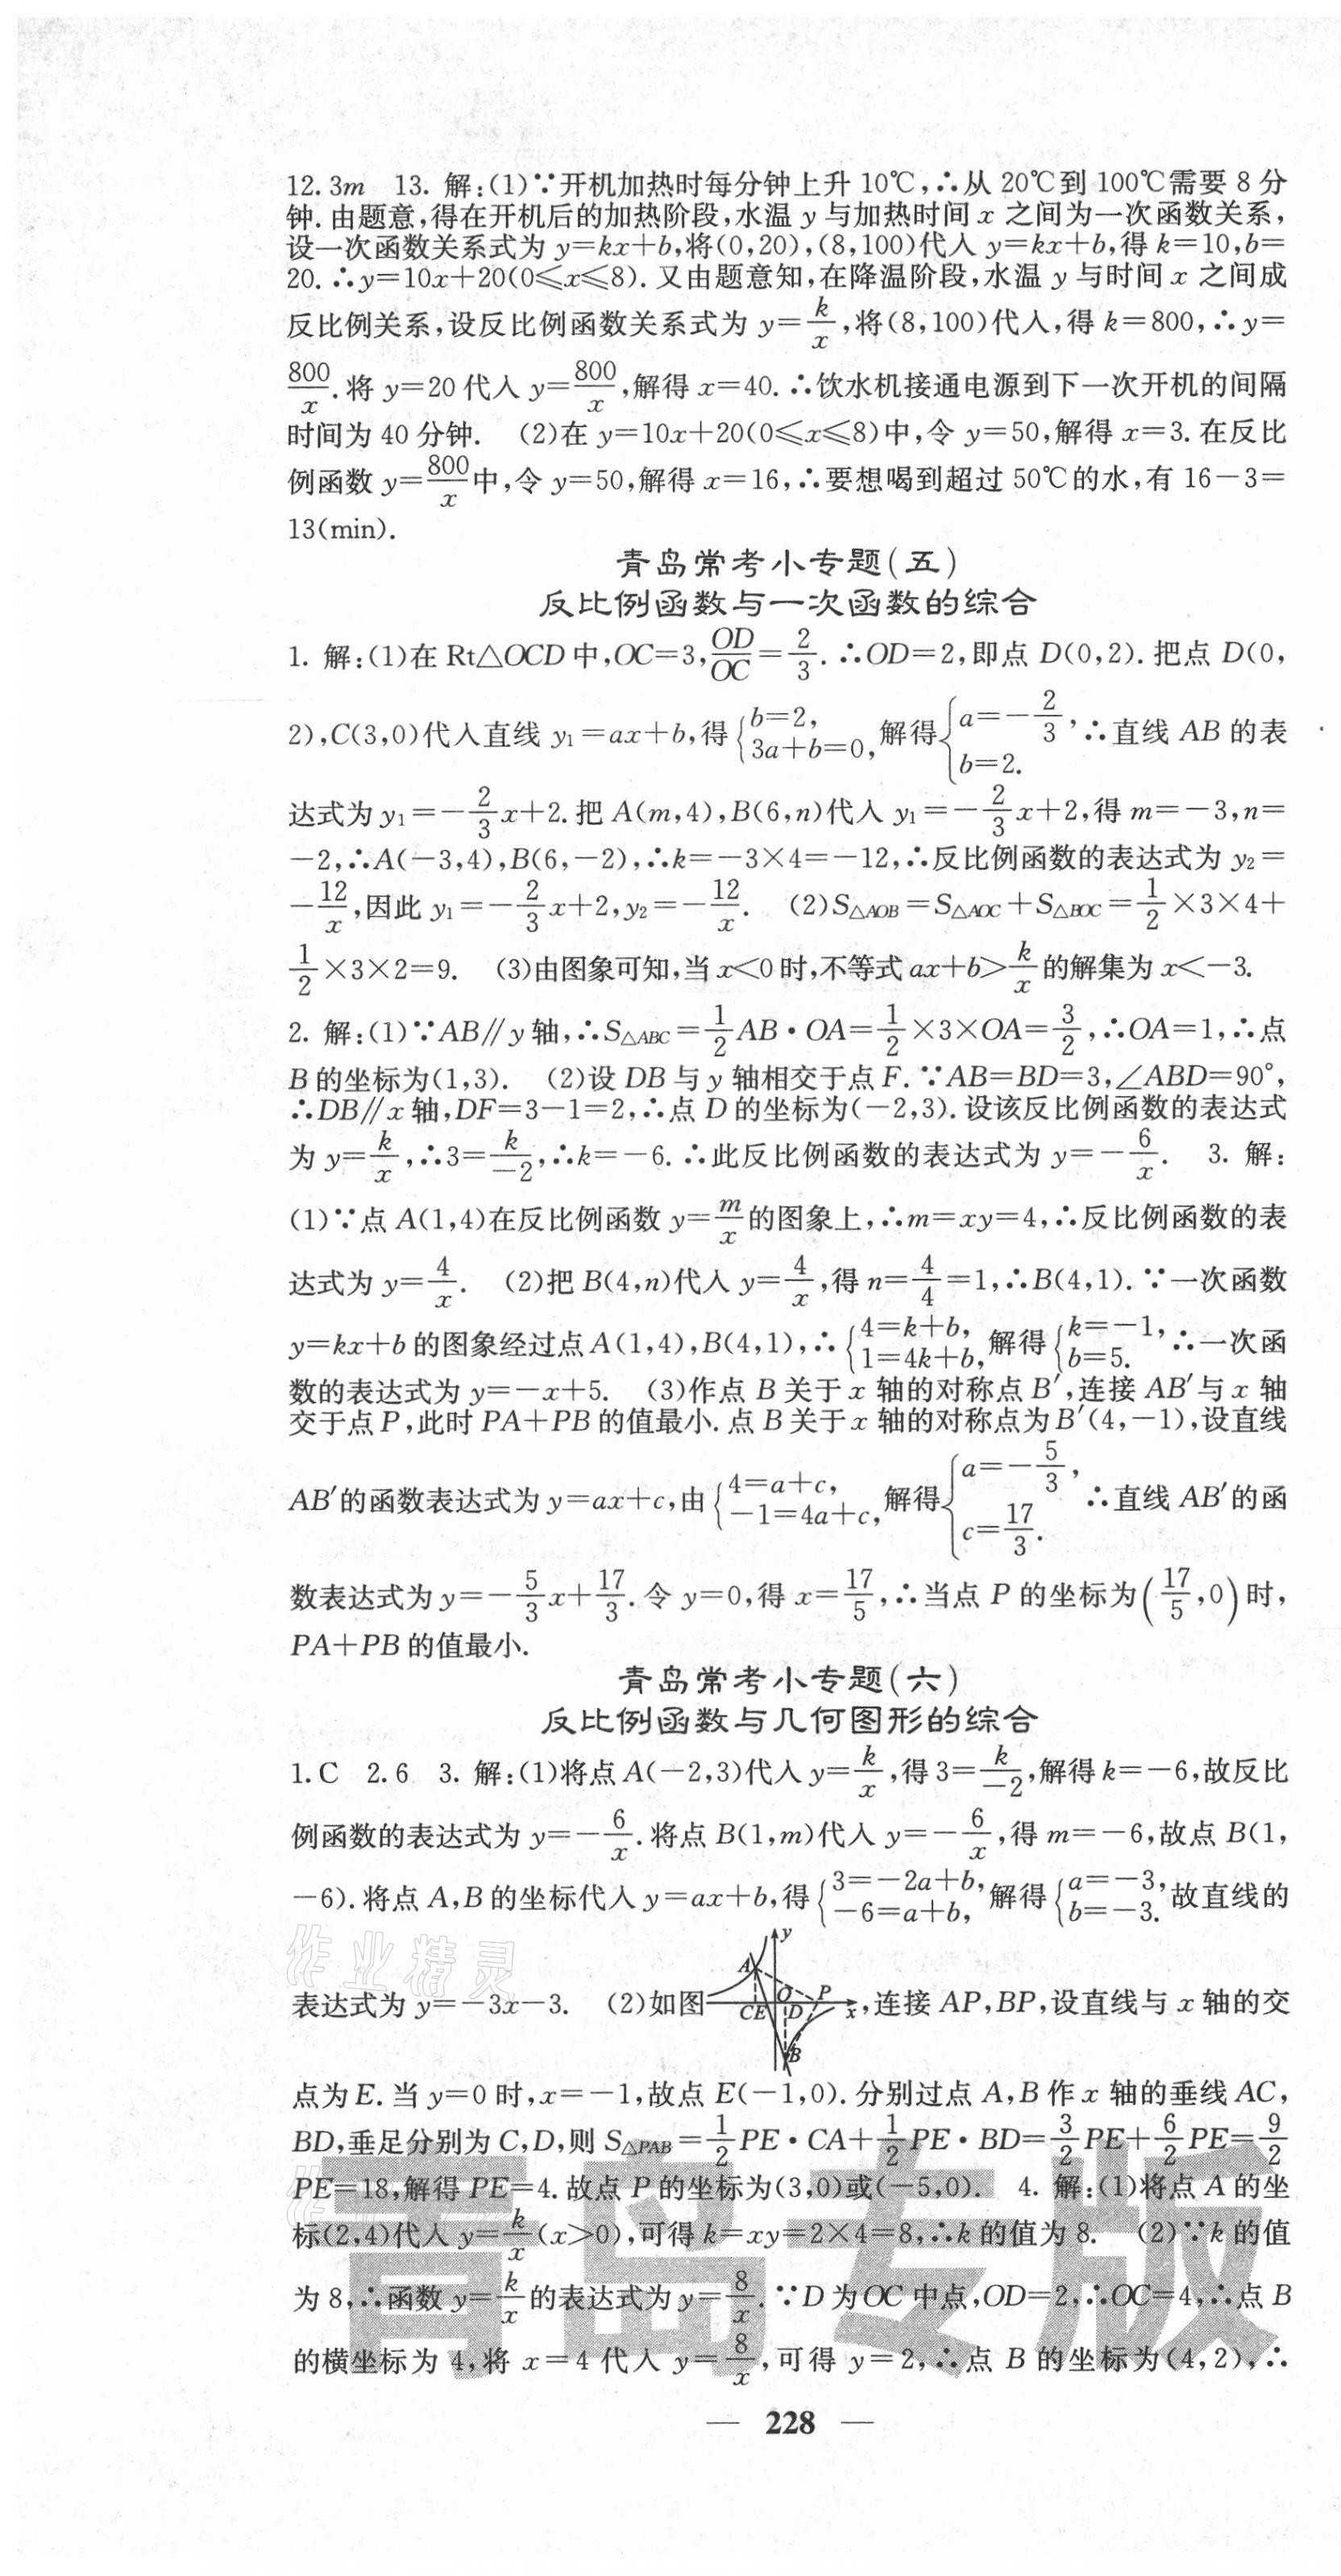 12. 3m 13. 解:(1)∵开机加热时每分钟上升 10℃,∴从 20℃到 100℃需要 8 分
钟. 由题意,得在开机后的加热阶段,水温 y 与加热时间 x 之间为一次函数关系,
设一次函数关系式为 y=kx+b,将(0,20),(8,100)代入 y=kx+b,得 k=10,b=
20. ∴y=10x+20(0≤x≤8). 又由题意知,在降温阶段,水温 y 与时间 x 之间成
反比例关系,设反比例函数关系式为 y=k/x,将(8,100)代入,得 k=800,∴y=
800/x. 将 y=20 代入 y=800/x,解得 x=40. ∴饮水机接通电源到下一次开机的间隔
时间为 40 分钟. (2)在 y=10x+20(0≤x≤8)中,令 y=50,解得 x=3. 在反比
例函数 y=800/x中,令 y=50,解得 x=16,∴要想喝到超过 50℃的水,有 16-3=
13(min).
青岛常考小专题(五)
反比例函数与一次函数的综合
1. 解:(1)在 Rt△OCD 中,OC=3,OD/OC=2/3. ∴OD=2,即点 D(0,2). 把点 D(0,
2),C(3,0)代入直线 y₁=ax+b,得{b=2, 3a+b=0, 解得{a=-2/3, b=2. ∴直线 AB 的表
达式为 y₁=-2/3x+2. 把 A(m,4),B(6,n)代入 y₁=-2/3x+2,得 m=-3,n=
-2,∴A(-3,4),B(6,-2),∴k=-3×4=-12,∴反比例函数的表达式为 y₂=
-12/x,因此 y₁=-2/3x+2,y₂=-12/x. (2)S△AOB=S△AOC+S△BOC=1/2×3×4+
1/2×3×2=9. (3)由图象可知,当 x<0 时,不等式 ax+b>k/x的解集为 x<-3.
2. 解:(1)∵AB∥y 轴,∴S△ABC=1/2AB·OA=1/2×3×OA=3/2,∴OA=1,∴点
B 的坐标为(1,3). (2)设 DB 与 y 轴相交于点 F. ∵AB=BD=3,∠ABD=90°,
∴DB∥x 轴,DF=3-1=2,∴点 D 的坐标为(-2,3). 设该反比例函数的表达式
为 y=k/x,∴3=k/-2,∴k=-6. ∴此反比例函数的表达式为 y=-6/x. 3. 解:
(1)∵点 A(1,4)在反比例函数 y=m/x的图象上,∴m=xy=4,∴反比例函数的表
达式为 y=4/x. (2)把 B(4,n)代入 y=4/x,得 n=4/4=1,∴B(4,1). ∵一次函数
y=kx+b 的图象经过点 A(1,4),B(4,1),∴{4=k+b, 1=4k+b, 解得{k=-1, b=5. ∴一次函
数的表达式为 y=-x+5. (3)作点 B 关于 x 轴的对称点 B′,连接 AB′与 x 轴
交于点 P,此时 PA+PB 的值最小. 点 B 关于 x 轴的对称点为 B′(4,-1),设直线
AB′的函数表达式为 y=ax+c,由{4=a+c, -1=4a+c, 解得{a=-5/3, c=17/3. ∴直线 AB′的函
数表达式为 y=-5/3x+17/3. 令 y=0,得 x=17/5,∴当点 P 的坐标为(17/5,0)时,
PA+PB 的值最小.
青岛常考小专题(六)
反比例函数与几何图形的综合
1. C 2. 6 3. 解:(1)将点 A(-2,3)代入 y=k/x,得 3=k/-2,解得 k=-6,故反比
例函数的表达式为 y=-6/x. 将点 B(1,m)代入 y=-6/x,得 m=-6,故点 B(1,
-6). 将点 A,B 的坐标代入 y=ax+b,得{3=-2a+b, -6=a+b, 解得{a=-3, b=-3. 故直线的
作业精灵
表达式为 y=-3x-3. (2)如图 y A O P C E D x B ,连接 AP,BP,设直线与 x 轴的交
点为 E. 当 y=0 时,x=-1,故点 E(-1,0). 分别过点 A,B 作 x 轴的垂线 AC,
BD,垂足分别为 C,D,则 S△PAB=1/2PE·CA+1/2PE·BD=3/2PE+6/2PE=9/2
PE=18,解得 PE=4. 故点 P 的坐标为(3,0)或(-5,0). 4. 解:(1)将点 A 的坐
标(2,4)代入 y=k/x(x>0),可得 k=xy=2×4=8,∴k 的值为 8. (2)∵k 的值
为 8,∴函数 y=k/x的表达式为 y=8/x. ∵D 为 OC 中点,OD=2,∴OC=4,∴点 B
的横坐标为 4,将 x=4 代入 y=8/x,可得 y=2,∴点 B 的坐标为(4,2),∴
青岛专版
— 228 —